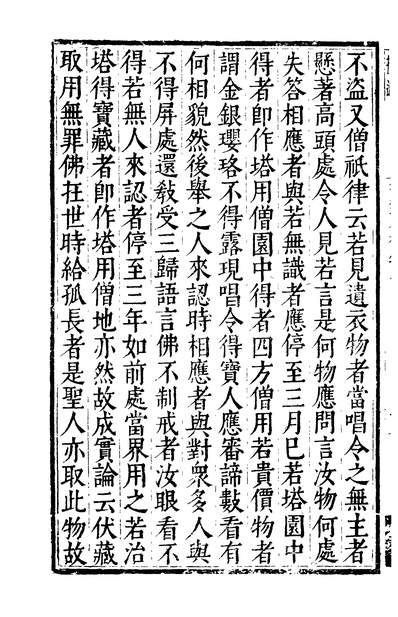 不盜又僧祇律云若見遺衣物者當唱令之無主者
懸著高頭處令人見若言是何物應問言汝物何處
失答相應者與若無識者應停至三月已若塔園中
得者即作塔用僧園中得者四方僧用若貴價物者
謂金銀瓔珞不得露現唱令得寶人應審諦數看有
何相貌然後舉之人來認時相應者與對衆多人與
不得屏處還敎受三歸語言佛不制戒者汝眼看不
得若無人來認者停至三年如前處當界用之若治
塔得寶藏者卽作塔用僧地亦然故成實論云伏藏
取用無罪佛在世時給孤長者是聖人亦取此物故